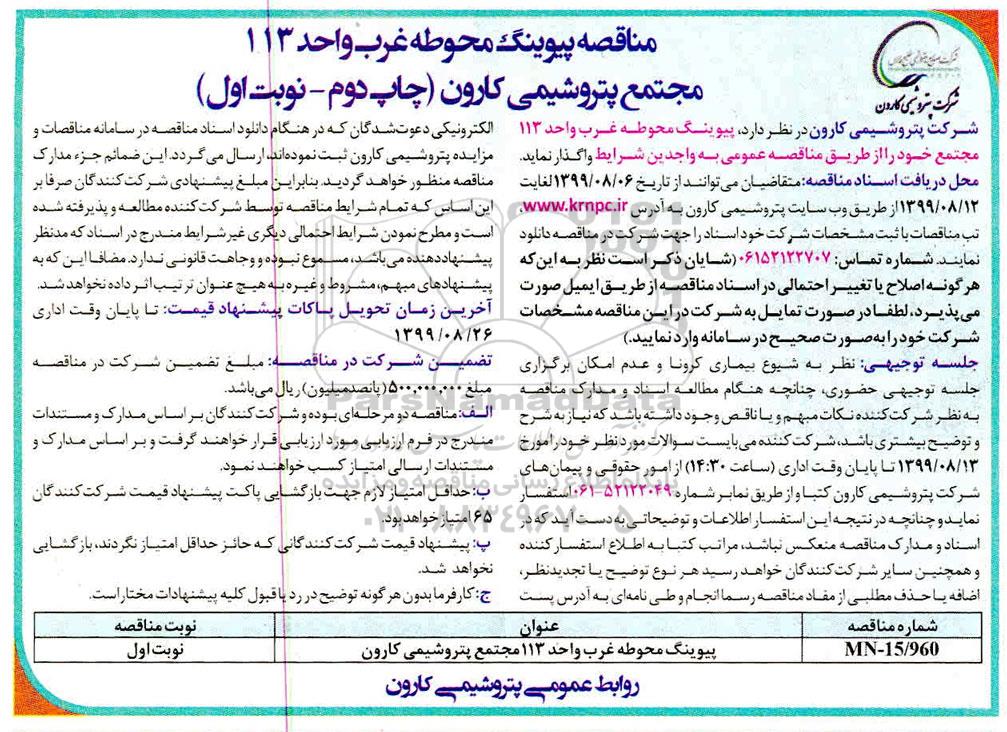 مناقصه پیوینگ محوطه غرب واحد ۱۱۳
مجتمع پتروشیمی کارون (چاپ دوم - نوبت اول)
شرکت پتروشیمی کارون
شرکت پتروشیمی کارون در نظر دارد، پیوینگ محوطه غرب واحد ۱۱۳
مجتمع خود را از طریق مناقصه عمومی به واجدین شرایط واگذار نماید.
محل دریافت اسناد مناقصه: متقاضیان می‌توانند از تاریخ ۱۳۹۹/۰۸/۰۶ لغایت
۱۳۹۹/۰۸/۱۲ از طریق وب سایت پتروشیمی کارون به آدرس www.krnpc.ir،
تب مناقصات با ثبت مشخصات شرکت خود اسناد را جهت شرکت در مناقصه دانلود
نمایند. شماره تماس: ۰۶۱۵۲۱۲۲۷۰۷ (شایان ذکر است نظر به این که
هر گونه اصلاح یا تغییر احتمالی در اسناد مناقصه از طریق ایمیل صورت
می‌پذیرد، لطفا در صورت تمایل به شرکت در این مناقصه مشخصات
شرکت خود را به صورت صحیح در سامانه وارد نمایید.)
جلسه توجیهی: نظر به شیوع بیماری کرونا و عدم امکان برگزاری
جلسه توجیهی حضوری، چنانچه هنگام مطالعه اسناد و مدارک مناقصه
به نظر شرکت کننده نکات مبهم و یا ناقص وجود داشته باشد که نیاز به شرح
و توضیح بیشتری باشد، شرکت کننده می‌بایست سوالات مورد نظر خود را مورخ
۱۳۹۹/۰۸/۱۳ تا پایان وقت اداری (ساعت ۱۴:۳۰) از امور حقوقی و پیمان‌های
شرکت پتروشیمی کارون کتبا و از طریق نمابر شماره ۵۲۱۲۳۰۴۹-۰۶۱ استفسار
نماید و چنانچه در نتیجه این استفسار اطلاعات و توضیحاتی به دست آید که در
اسناد و مدارک مناقصه منعکس نباشد، مراتب کتبا به اطلاع استفسار کننده
و همچنین سایر شرکت کنندگان خواهد رسید هر نوع توضیح یا تجدیدنظر،
اضافه یا حذف مطلبی از مفاد مناقصه رسما انجام و طی نامه‌ای به آدرس پست
الکترونیکی دعوت شدگان که در هنگام دانلود اسناد مناقصه در سامانه مناقصات و
مزایده پتروشیمی کارون ثبت نموده‌اند، ارسال می‌گردد. این ضمائم جزء مدارک
مناقصه منظور خواهد گردید. بنابراین مبلغ پیشنهادی شرکت کنندگان صرفا بر
این اساس که تمام شرایط مناقصه توسط شرکت کننده مطالعه و پذیرفته شده
است و مطرح نمودن شرایط احتمالی دیگری غیر شرایط مندرج در اسناد که مدنظر
پیشنهاددهنده می‌باشد، مسموع نبوده و وجاهت قانونی ندارد. مضافا این که به
پیشنهادهای مبهم، مشروط و غیره به هیچ عنوان ترتیب اثر داده نخواهد شد.
آخرین زمان تحویل پاکات پیشنهاد قیمت: تا پایان وقت اداری
۱۳۹۹/۰۸/۲۶
تضمین شرکت در مناقصه: مبلغ تضمین شرکت در مناقصه
مبلغ ۵۰۰,۰۰۰,۰۰۰ (پانصدمیلیون) ریال می‌باشد.
الف: مناقصه دو مرحله‌ای بوده و شرکت کنندگان بر اساس مدارک و مستندات
مندرج در فرم ارزیابی مورد ارزیابی قرار خواهند گرفت و بر اساس مدارک و
مستندات ارسالی امتیاز کسب خواهند نمود.
ب: حداقل امتیاز لازم جهت بازگشایی پاکت پیشنهاد قیمت شرکت کنندگان
۶۵ امتیاز خواهد بود.
پ: پیشنهاد قیمت شرکت کنندگانی که حائز حداقل امتیاز نگردند، بازگشایی
نخواهد شد.
ج: کارفرما بدون هر گونه توضیح در رد یا قبول کلیه پیشنهادات مختار است.
شماره مناقصه عنوان نوبت مناقصه
MN-15/960 پیوینگ محوطه غرب واحد ۱۱۳ مجتمع پتروشیمی کارون نوبت اول
روابط عمومی پتروشیمی کارون
ParsNamadData
پایگاه اطلاع رسانی مناقصه و مزایده
۰۲۱-۸۸۳۴۹۶۷۰-۵